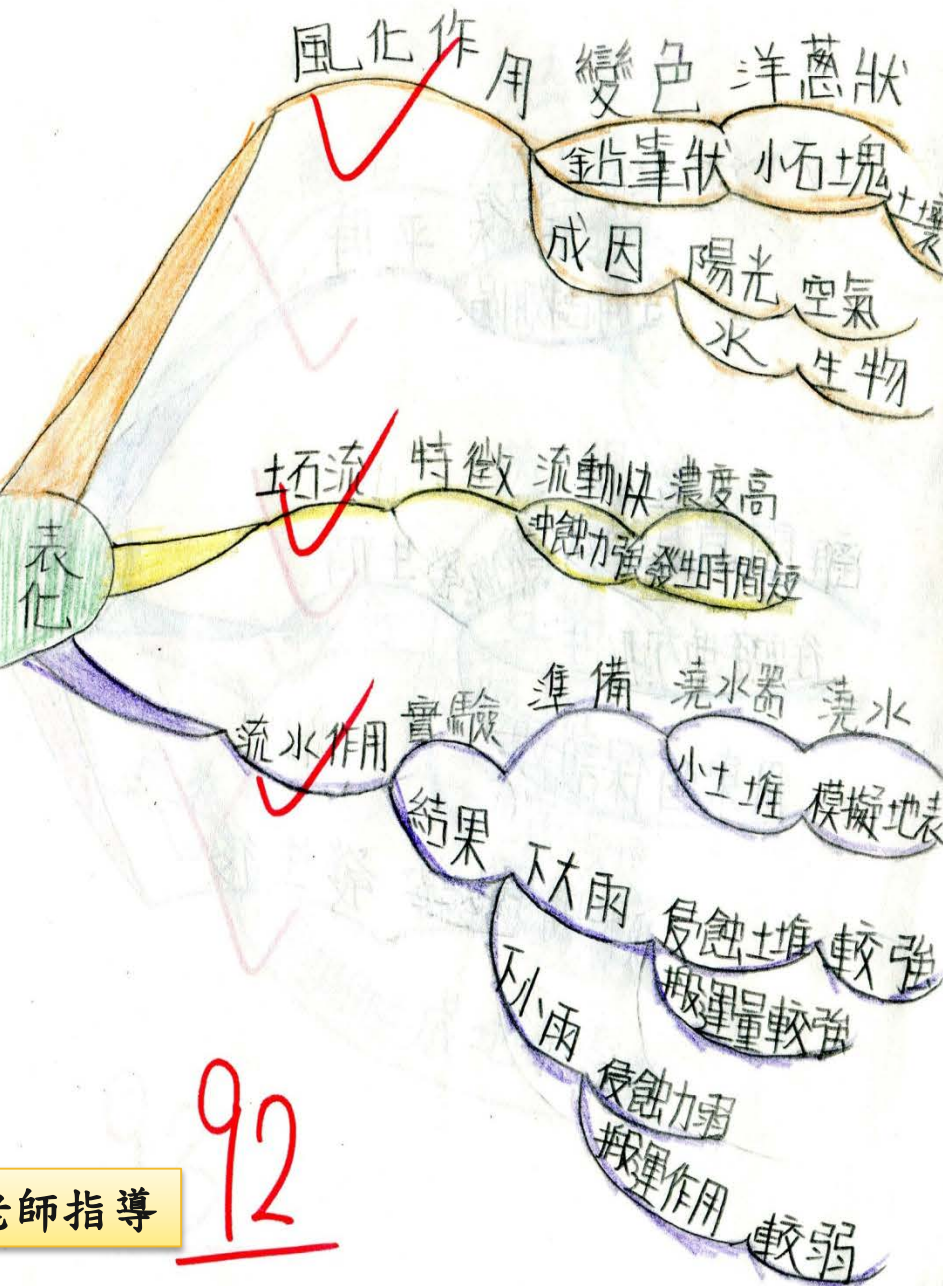 風化作用 變色 洋蔥狀
鉛筆狀 小石塊 土壤
成因 陽光 空氣
水 生物
表
化
土石流 特徵 流動快 濃度高
沖蝕力強 發生時間短
流水作用 實驗 準備 澆水器 澆水
小土堆 模擬地表
結果 下大雨 侵蝕土堆 較強
搬運量較強
下小雨 侵蝕力弱
搬運作用 較弱
92
老師指導